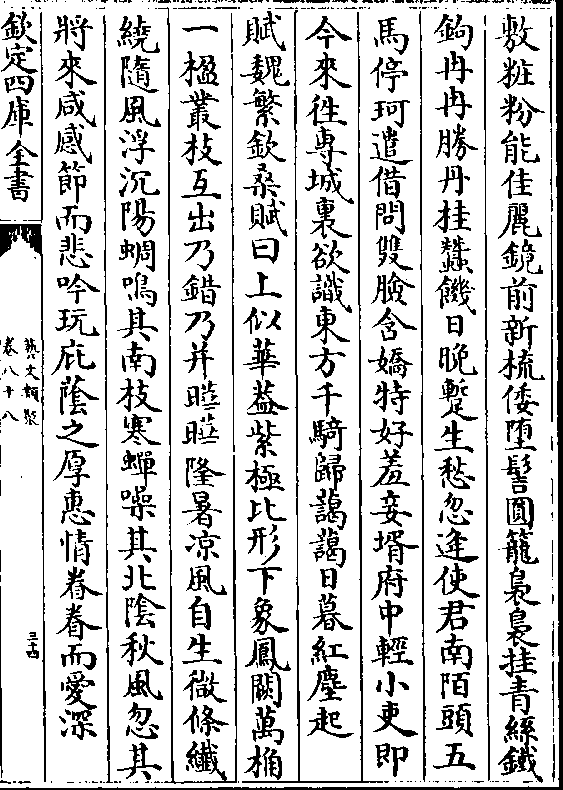 敷粧粉能佳麗鏡前新梳倭堕髻圓籠裊裊挂青絲鐵
鉤冉冉勝丹桂蠶饑日晚蹔生愁忽逢使君南陌頭五
馬停珂遣借問雙臉含嬌特好羞妾壻府中輕小吏即
今來徃專城裏欲識東方千騎歸藹藹日暮紅塵起
賦魏繁欽桑賦曰上似華葢紫極比形下象鳳闕萬桷
一楹叢枝互出乃錯乃并㬢㬢隆暑凉風自生微條纖
繞隨風浮沉陽蜩鳴其南枝寒蟬噪其北陰秋風忽其
將來咸感節而悲吟玩庇䕃之厚惠情眷眷而愛深
欽定四庫全書
藝文類聚
卷八十八
三十四